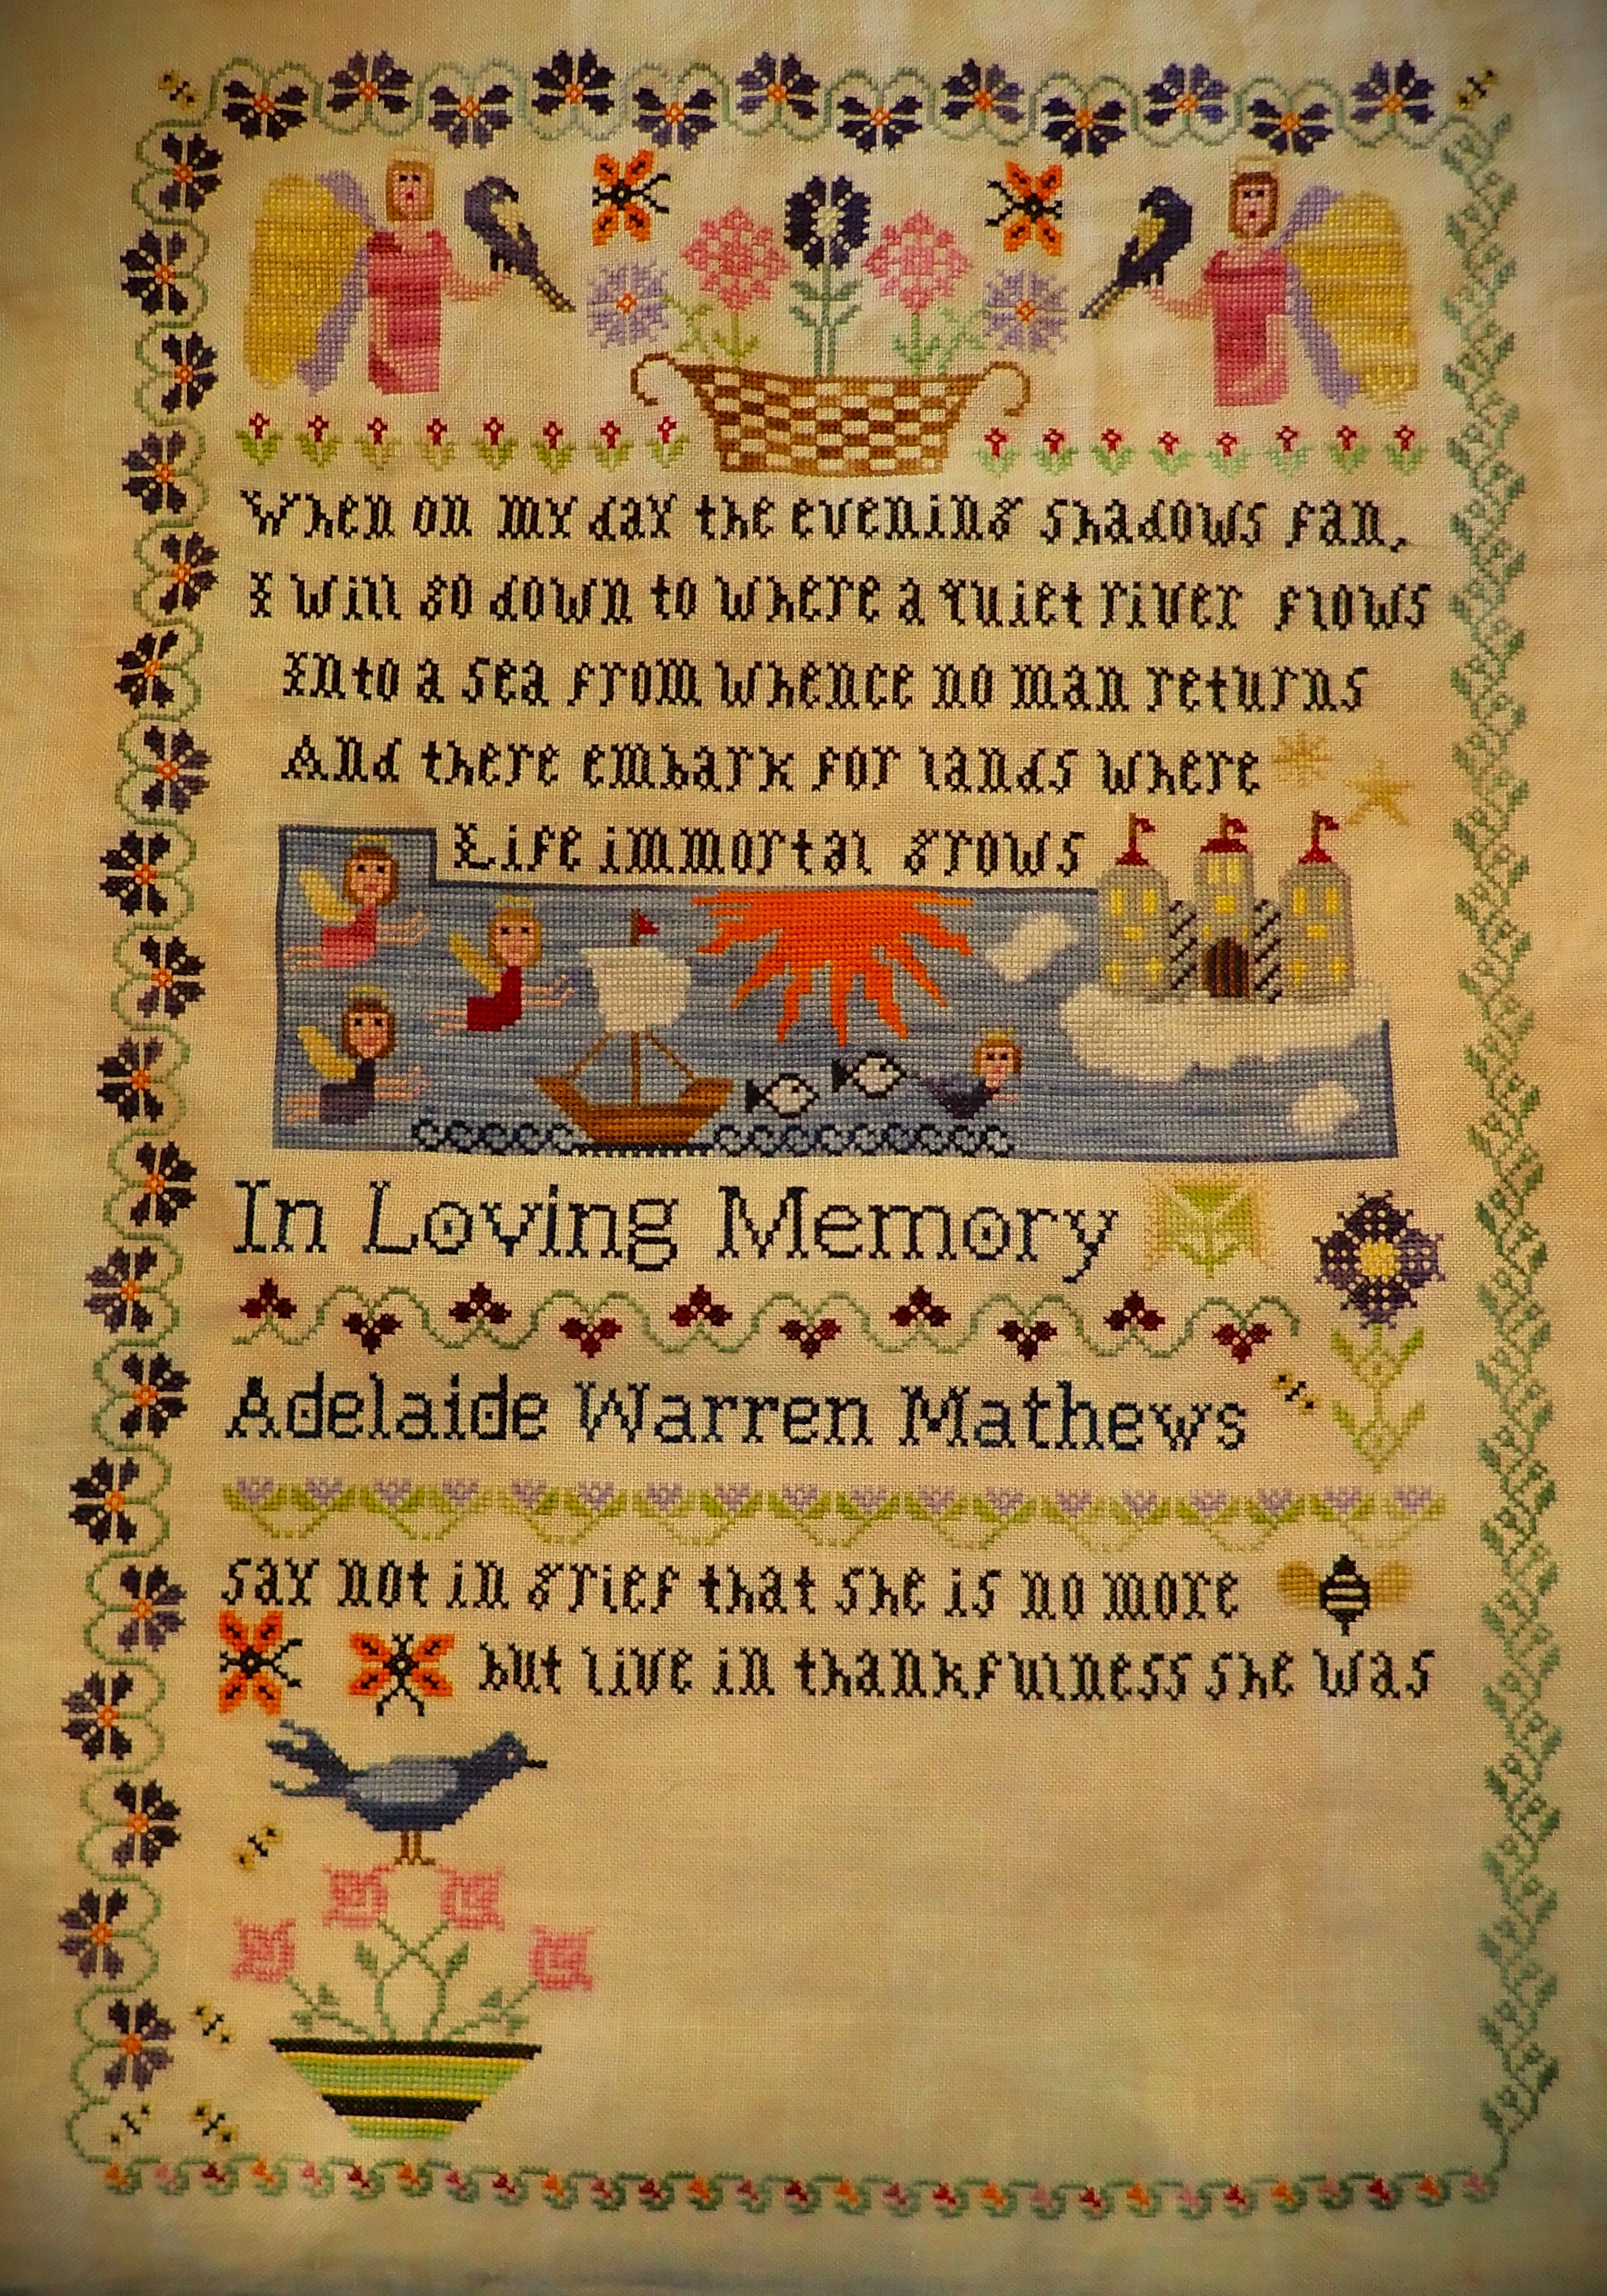 When on my day the evening shadows fall,
I will go down to where a quiet river flows
Into a sea from whence no man returns
And there embark for lands where
Life immortal grows
In Loving Memory
Adelaide Warren Mathews
say not in grief that she is no more
but live in thankfulness she was